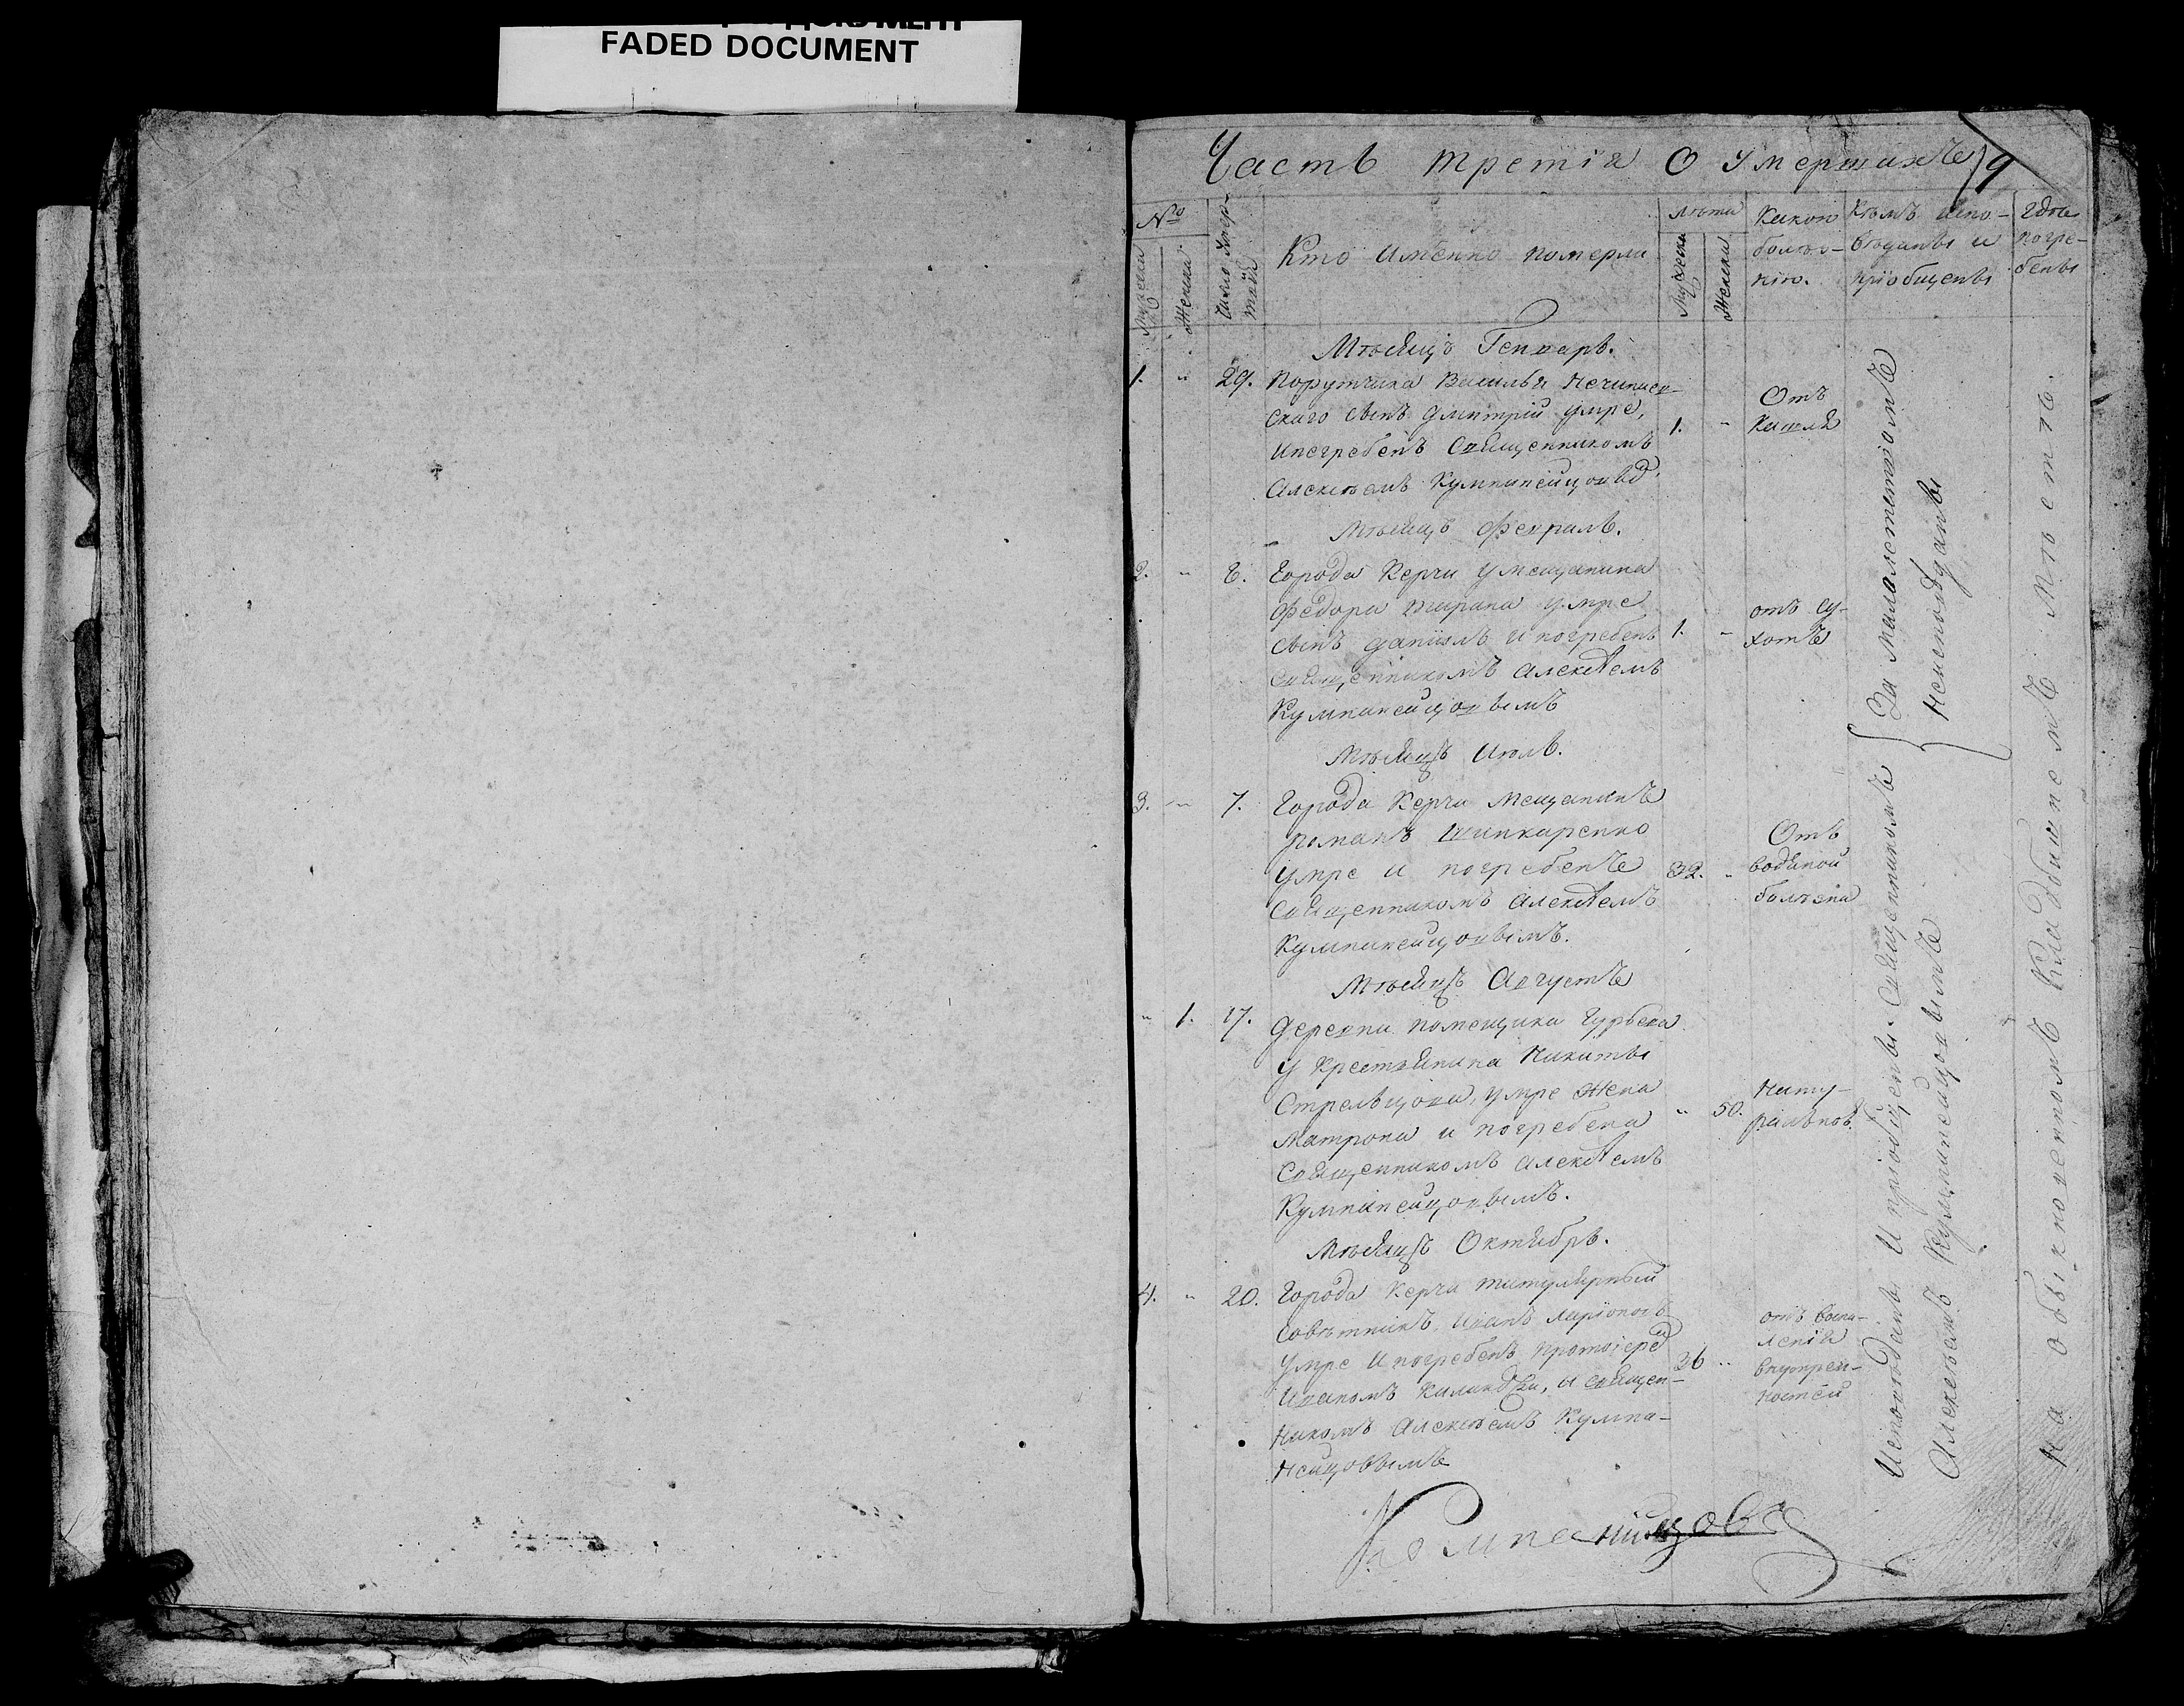 FADED DOCUMENT
Часть третія О умершихъ
9
№
Мужеска
Женска
Число умер-
шихъ
Кто Именно померли
лѣта
Мужеска
Женска
Какою
болѣз-
нію.
Кѣмъ испо-
вѣданы и
пріобщены
Гдѣ
погре-
бены
Мѣсяцъ Генварь.
1. " 29. Порутчика Василья
скаго сынъ Дмитрій умре,
и погребенъ Священникомъ
Алексѣемъ
1. "
Отъ
Кашля
Мѣсяцъ Февраль.
2. " 6. Города Керчи у мещанина
Федора умре
сынъ Даніилъ и погребенъ
Священникомъ Алексѣемъ
Кумпанейцовымъ
1. "
отъ су-
хотъ
Мѣсяцъ Июль.
3. " 7. Города Керчи Мещанинъ
Романъ Шинкаренко
умре и погребенъ
Священникомъ Алексѣемъ
Кумпанейцовымъ.
32. "
Отъ
водяной
болѣзни
Мѣсяцъ Августъ
" 1. 17. Деревни помещика Гурбека
у Крестьянина Никиты
Стрельцова, умре Жена
Матрона и погребена
Священникомъ Алексѣемъ
Кумпанейцовымъ.
" 50.
Нату-
ральной
Мѣсяцъ Октябрь.
4. " 20. Города Керчи титулярный
Совѣтникъ Иванъ Ларіоновъ
умре и погребенъ протоіерей
Иваномъ и Священ-
никомъ Алексѣемъ Кумпа-
нейцовымъ
36 "
отъ воспа-
ленія
внутрен-
ностей
За малолетствомъ
Неисповѣданы
Исповѣданы И пріобщены Священникомъ
Алексѣемъ Кумпанейцовымъ
На обыкновенномъ Кладбищемъ Мѣстѣ.
Компанейцовъ